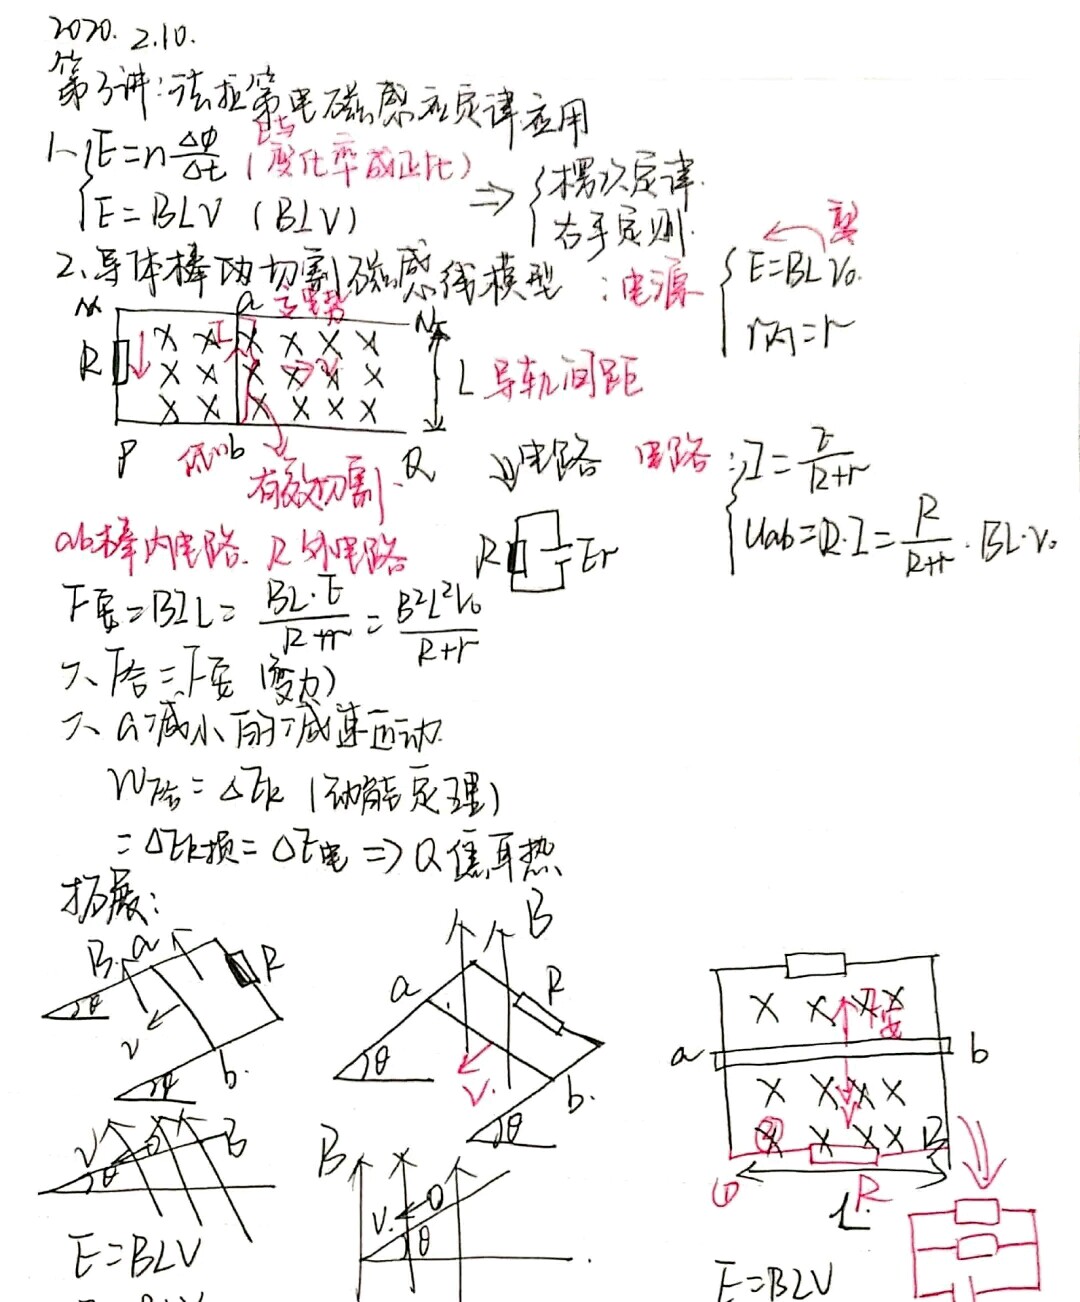 2020. 2.10.
第3讲:法拉第电磁感应定律应用
1、E=nΔΦ/Δt (E与变化率成正比)
E=BLV (BLV) ⇒ 楞次定律.
右手定则.
2、导体棒切割磁感线模型:电源
E=BLV₀.
r内=r
M a N
R I V
L 导轨间距
P b Q
有效切割.
↓电路 电路: I=E/(R+r)
Uab=R·I=R/(R+r)·BL·V₀
ab棒内电路. R外电路
R E r
F安=BIL=BL·E/(R+r)=B²L²V₀/(R+r)
F合=F安 (变力)
a减小的减速运动.
W合=ΔEk (动能定理)
=ΔEk损=ΔE电 ⇒ Q焦耳热
拓展:
B a R θ V θ b.
B a R θ V. b. θ
a F安 b
V θ B
B V. θ
① ② R B L
E=BLV
E=BLV